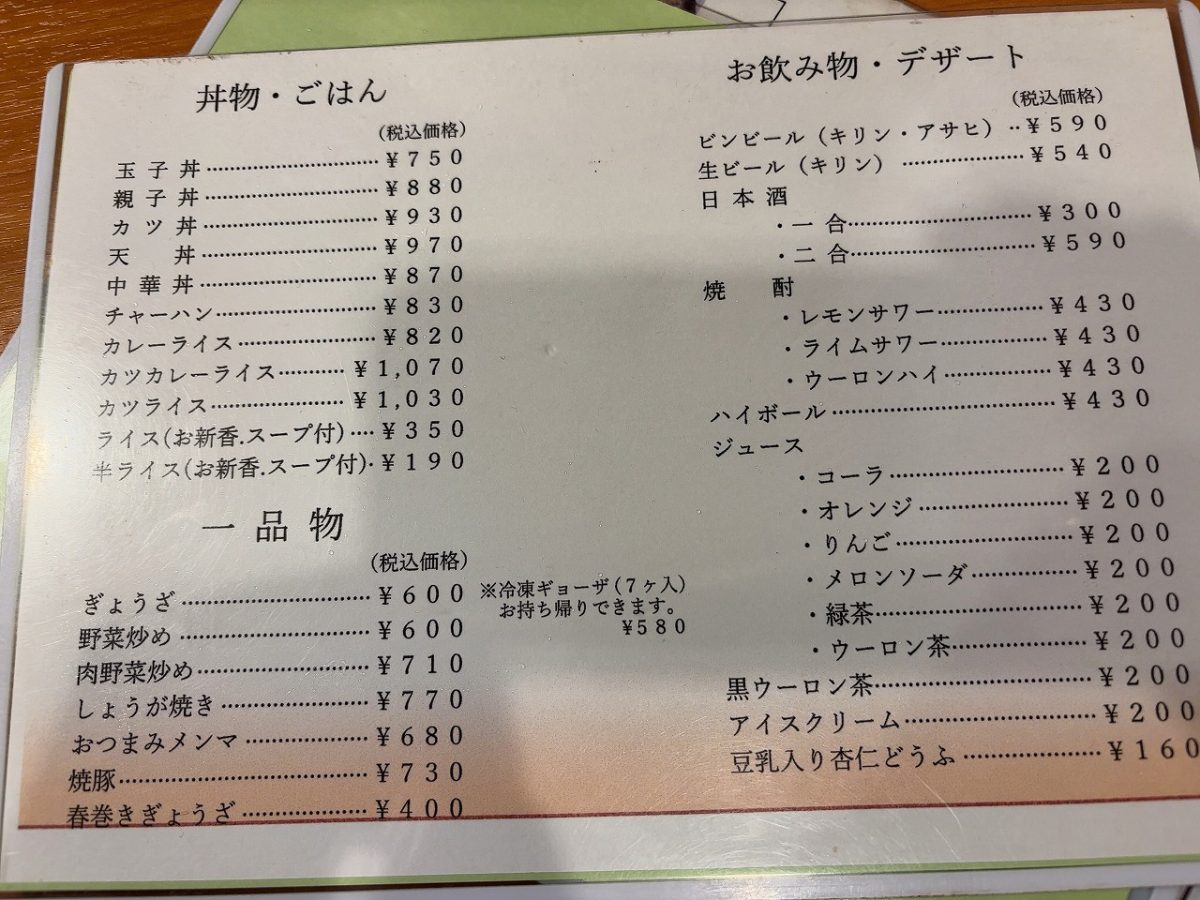 丼物・ごはん
(税込価格)
玉子丼……………………¥750
親子丼……………………¥880
カツ丼……………………¥930
天　丼……………………¥970
中華丼……………………¥870
チャーハン…………………¥830
カレーライス………………¥820
カツカレーライス…………¥1,070
カツライス…………………¥1,030
ライス(お新香.スープ付)‥‥¥350
半ライス(お新香.スープ付)‥¥190
一品物
(税込価格)
ぎょうざ……………………¥600
※冷凍ギョーザ(7ヶ入)
お持ち帰りできます。
¥580
野菜炒め……………………¥600
肉野菜炒め…………………¥710
しょうが焼き………………¥770
おつまみメンマ……………¥680
焼豚…………………………¥730
春巻きぎょうざ……………¥400
お飲み物・デザート
(税込価格)
ビンビール（キリン・アサヒ）‥¥590
生ビール（キリン）…………¥540
日本酒
・一合………………………¥300
・二合………………………¥590
焼　酎
・レモンサワー……………¥430
・ライムサワー……………¥430
・ウーロンハイ……………¥430
ハイボール…………………¥430
ジュース
・コーラ……………………¥200
・オレンジ…………………¥200
・りんご……………………¥200
・メロンソーダ……………¥200
・緑茶………………………¥200
・ウーロン茶………………¥200
黒ウーロン茶………………¥200
アイスクリーム……………¥200
豆乳入り杏仁どうふ………¥160